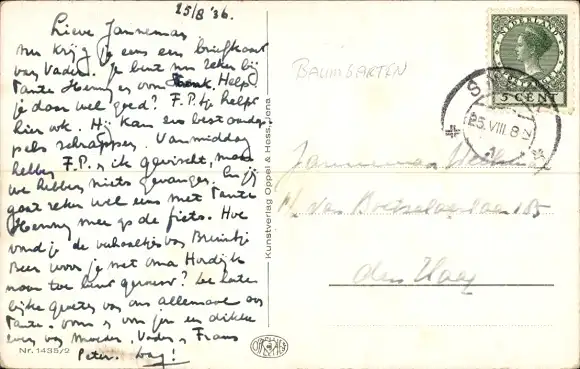 25/8 '36.
Lieve Janneman
Nu krijg je eens een briefkaart
van Vader. Je bent nu zeker bij
Tante Henny en oom Henk. Help
je daar wel goed? F.P.tje helpt
hier ook. Hij kan erg best aardap-
pels schrappen. Vanmiddag
hebben F.P. & ik gevischt, maar
we hebben niets gevangen. En jij
gaat zeker wel eens met Tante
Henny mee op de fiets. Hoe
vond je de verhaaltjes van Bruintje
Beer waar je met oma Hordijk
naar toe bent geweest? Lee harte
lijke groeten van ons allemaal aan
Tante, oom & voor jou een dikke
van Moeder, Vader, Frans
Peter. Dag!
Nr. 1435/2
Kunstverlag Oppel & Hess, Jena
BAUMGARTEN
NEDERLAND
5 CENT
25.VIII.8-
Janneman
v. d. Boetzelaerlaan 185
den Haag